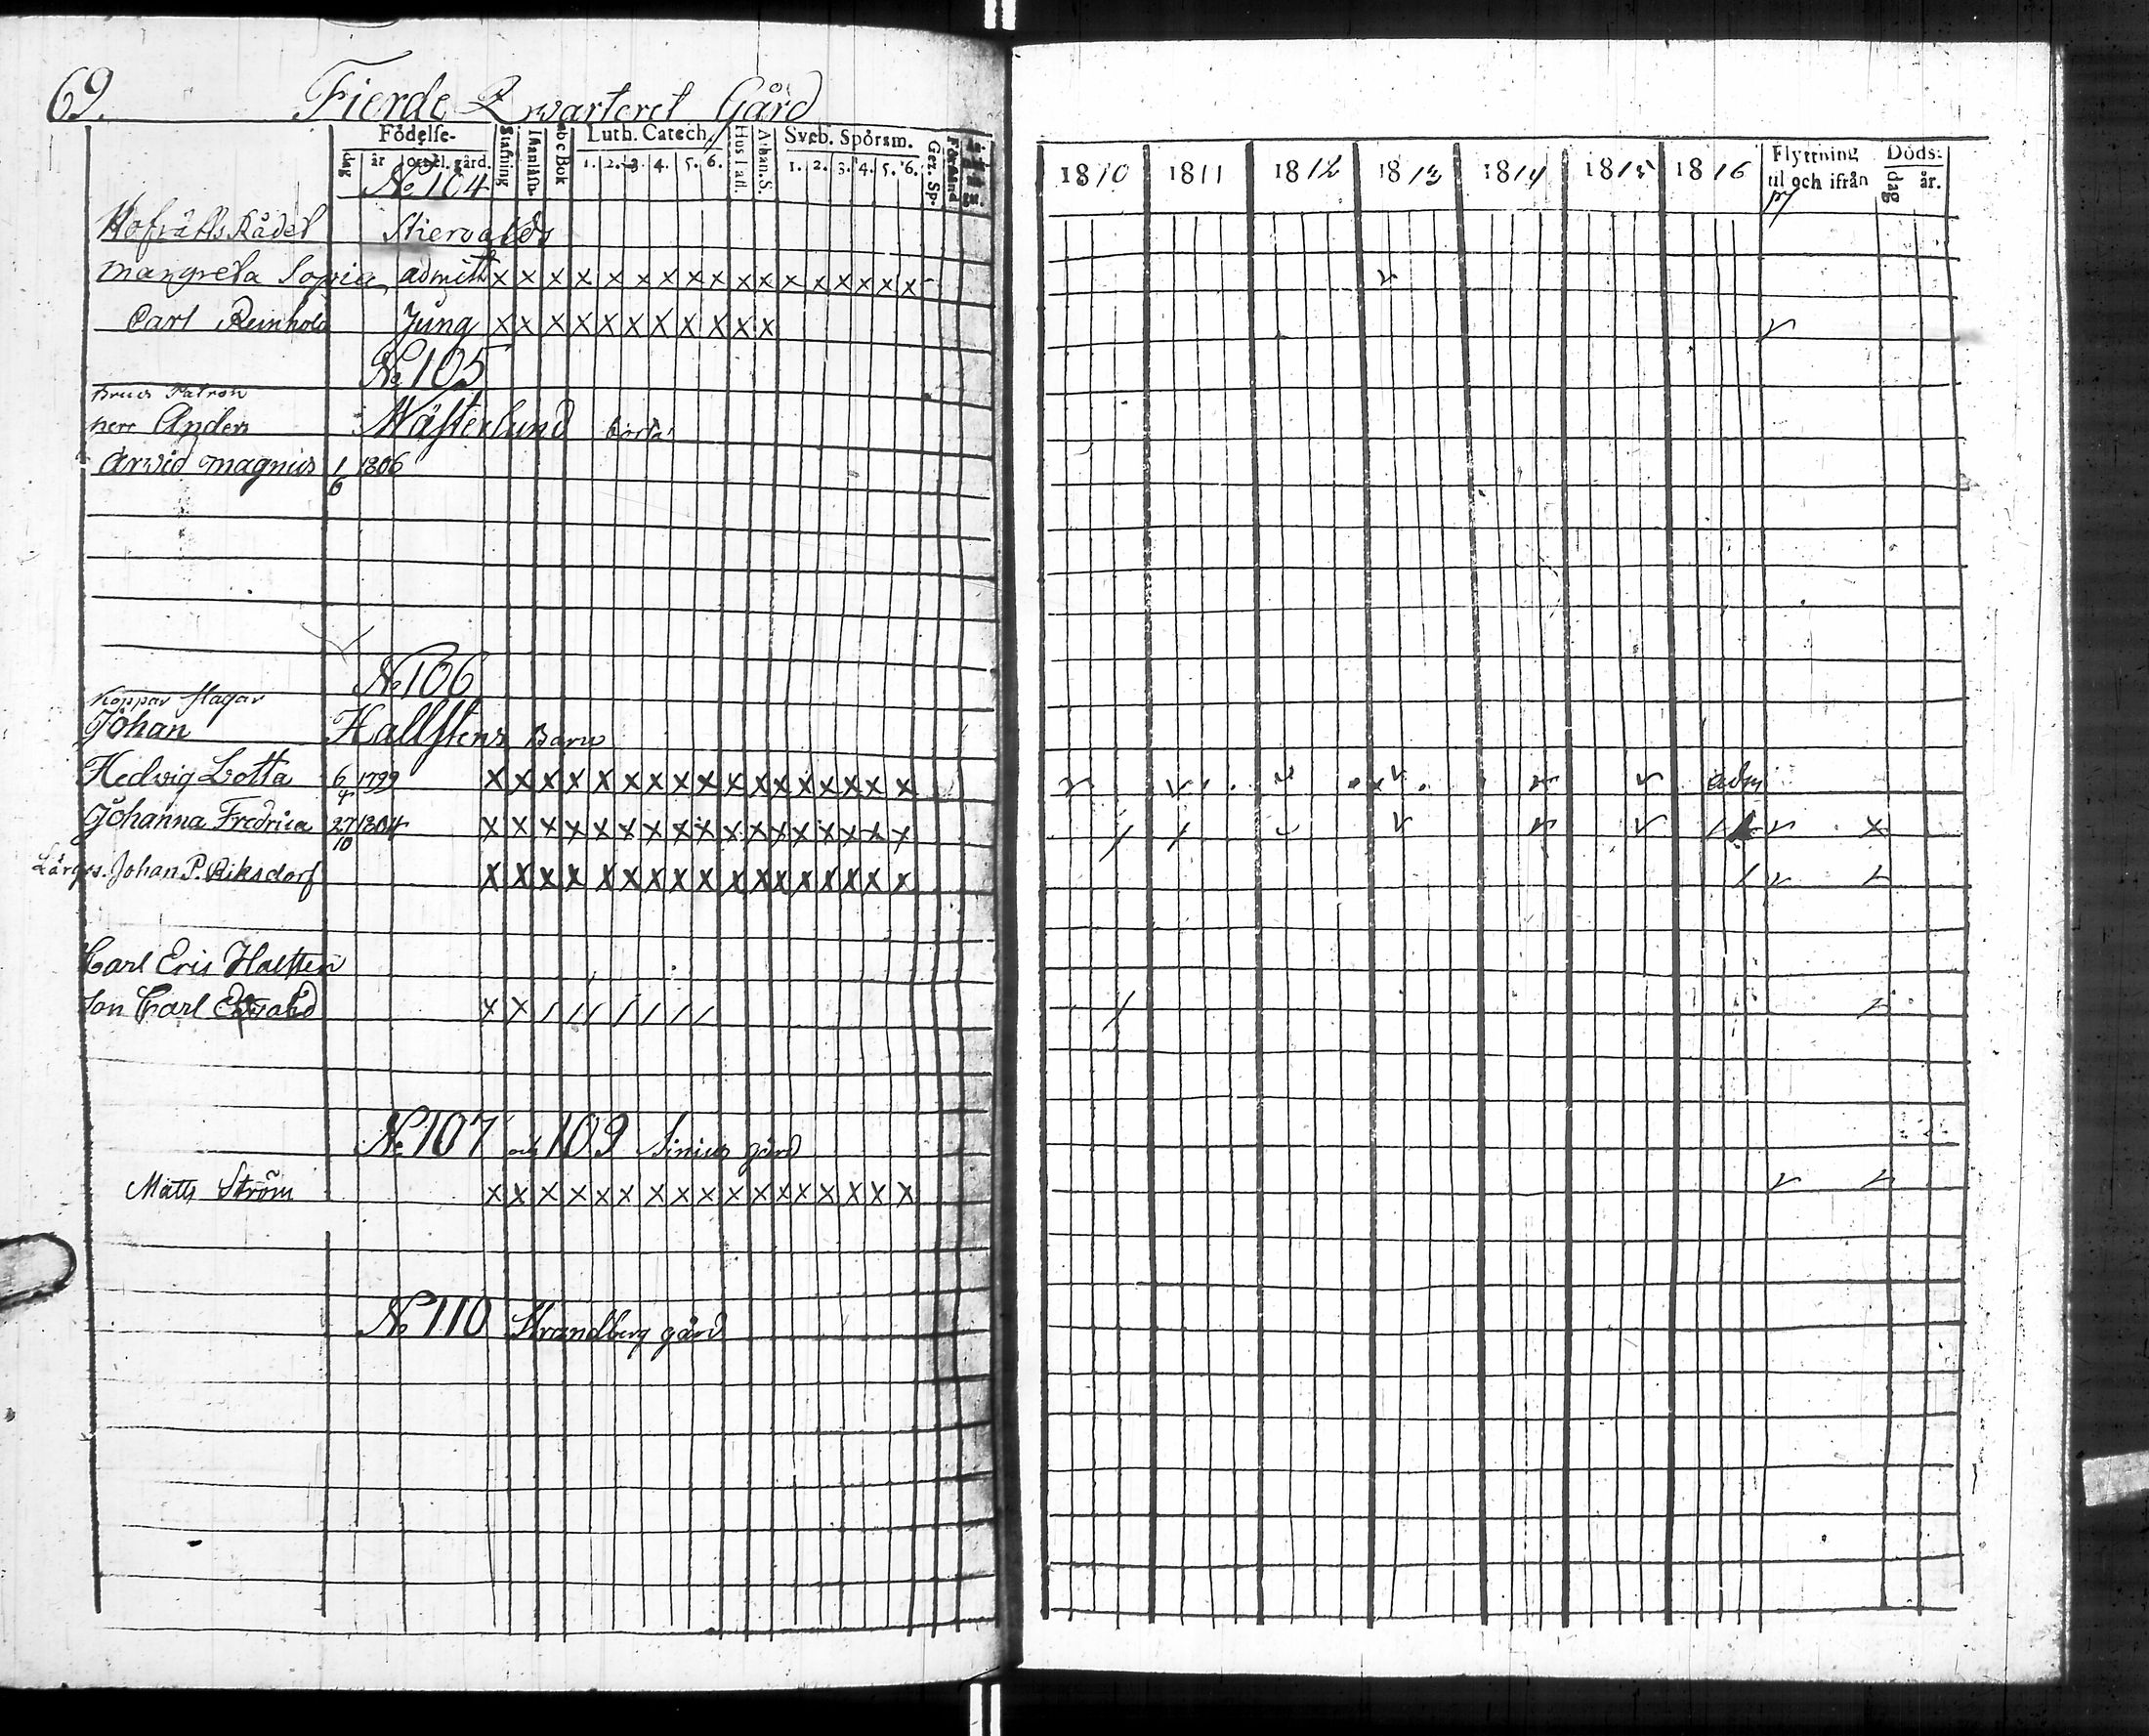 69. Fierde Qwarteret Gård
Födelse- Stafning Innanläsn. abc Bok Luth. Catech. Hus Tafl. Athan. S. Sveb. Spörsm. Gez. Sp.
dag år ort el. gård. 1. 2. 3. 4. 5. 6. 1. 2. 3. 4. 5. 6.
1810 1811 1812 1813 1814 1815 1816 Flyttning til och ifrån Döds: dag år.
No 104
Hofrätts Rådet Stiervalds
Margreta Sopvia admitt x x x x x x x x x x x x x x x x x
Carl Reinhold Jung x x x x x x x x x x x
No 105
Bruks Patron
herr Anders Wästerlund borta
Arvid Magnus 1/6 1806
No 106
Koppar slagar
Johan Hallstens Barn
Hedvig Lotta 6/4 1799 x x x x x x x x x x x x x x x x x adm
Johanna Fredrica 27/10 1804 x x x x x x x x x x x x x x x x x
Lärgos. Johan P. Riksdorf x x x x x x x x x x x x x x x x x
Carl Eric Halsten
Son Carl Edvard x x / / / / / / / /
No 107 och 109 Sinius gård
Matts Ström x x x x x x x x x x x x x x x x x
No 110 Strandberg gård